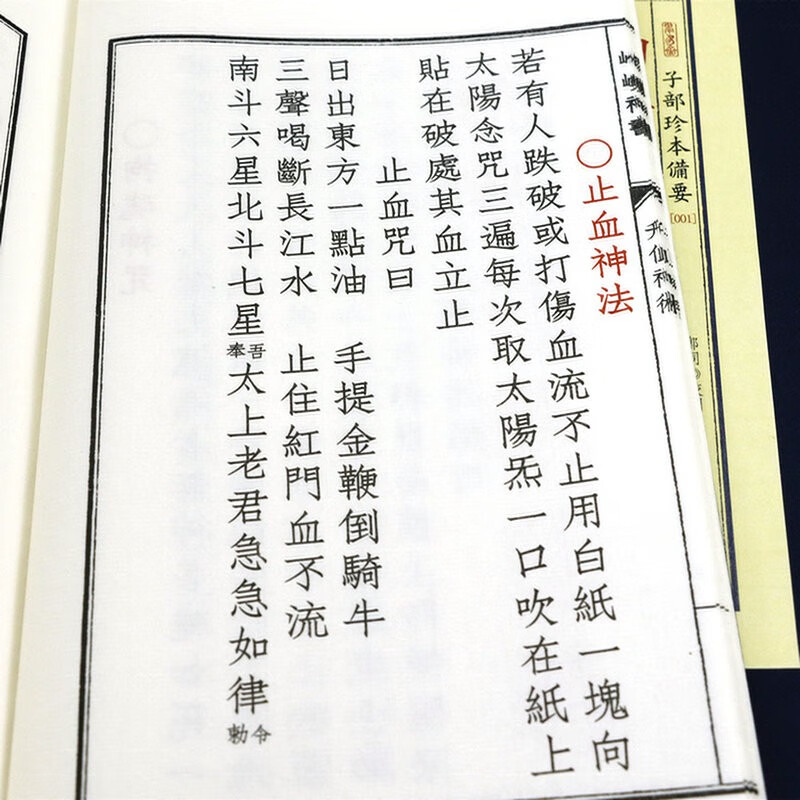 ○止血神法
若有人跌破或打傷血流不止用白紙一塊向
太陽念咒三遍每次取太陽炁一口吹在紙上
貼在破處其血立止
止血咒曰
日出東方一點油 手提金鞭倒騎牛
三聲喝斷長江水 止住紅門血不流
南斗六星北斗七星吾奉太上老君急急如律令勅
神書
仙神術
子部珍本備要
[001]